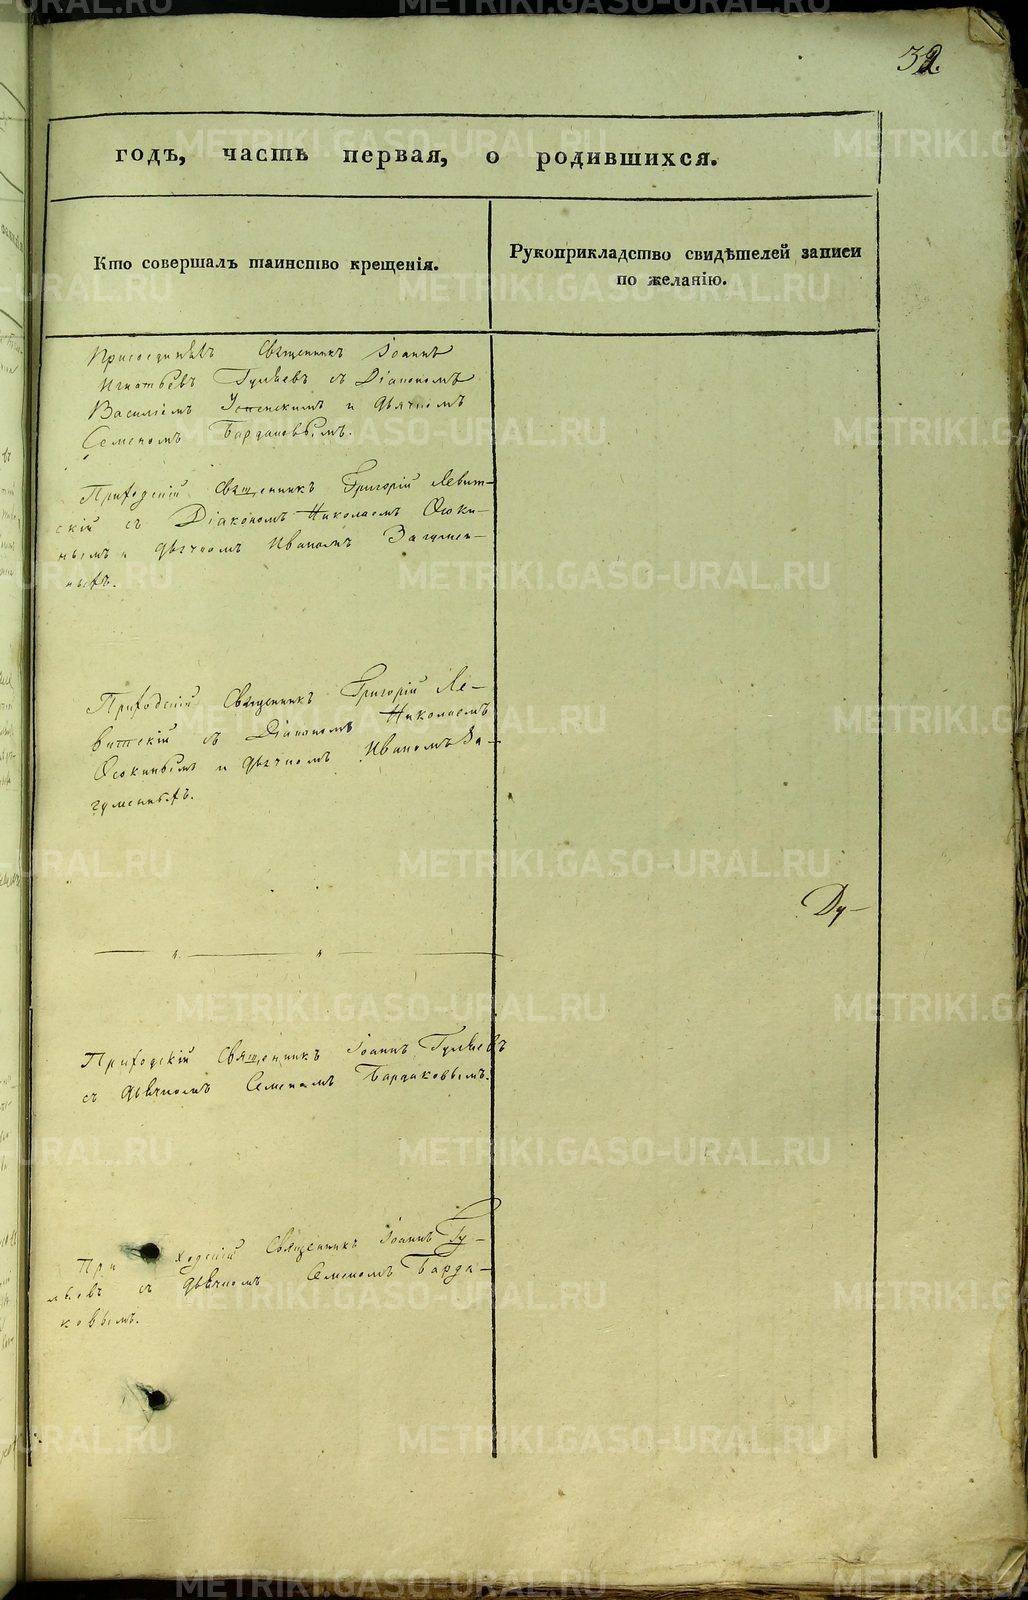 32.
годъ, часть первая, о родившихся.
Кто совершалъ таинство крещенія.
Рукоприкладство свидѣтелей записи
по желанію.
Священникъ Іоаннъ
Игнатьевъ Гуляевъ съ Діакономъ
Василіемъ Успенскимъ и дьячкомъ
Семеномъ Бардаковымъ.
Приходскій Священникъ Григорій Левит-
скій съ Діакономъ Николаемъ Осоки-
нымъ и дьячкомъ Иваномъ Загумен-
ныхъ.
Приходскій Священникъ Григорій Ле-
витскій съ Діакономъ Николаемъ
Осокинымъ и дьячкомъ Иваномъ За-
гуменныхъ.
Ду-
Приходскій Священникъ Іоаннъ Гуляевъ
съ дьячкомъ Семеномъ Бардаковымъ.
При ходскій Священникъ Іоаннъ Гу-
ляевъ съ дьячкомъ Семеномъ Барда-
ковымъ.
METRIKI.GASO-URAL.RU